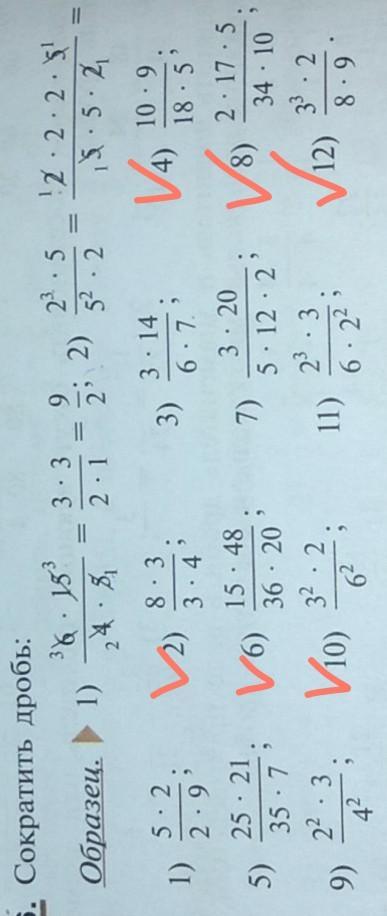 6. Сократить дробь:
Образец. ▶ 1) (³6 · 15³)/(₂4 · 5₁) = (3 · 3)/(2 · 1) = 9/2; 2) (2³ · 5)/(5² · 2) = (¹2 · 2 · 2 · 5¹)/(₁5 · 5 · 2₁) =
1) (5 · 2)/(2 · 9); 2) (8 · 3)/(3 · 4); 3) (3 · 14)/(6 · 7); 4) (10 · 9)/(18 · 5);
5) (25 · 21)/(35 · 7); 6) (15 · 48)/(36 · 20); 7) (3 · 20)/(5 · 12 · 2); 8) (2 · 17 · 5)/(34 · 10);
9) (2² · 3)/4²; 10) (3² · 2)/6²; 11) (2³ · 3)/(6 · 2²); 12) (3³ · 2)/(8 · 9).